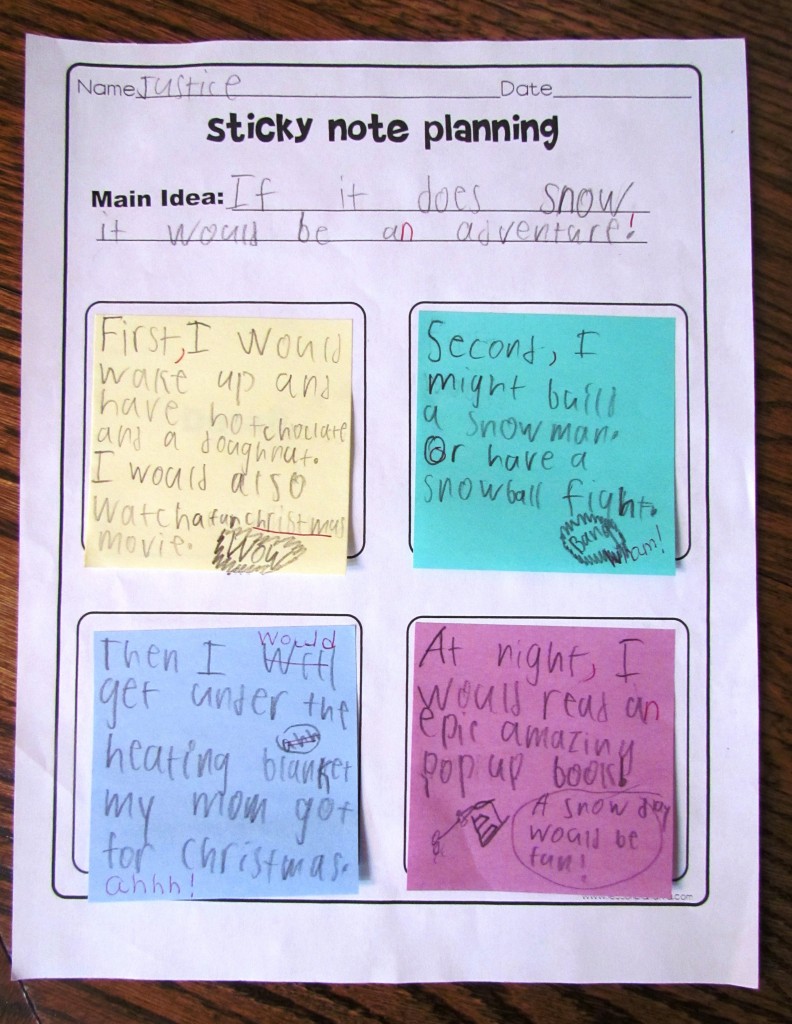 Name Justice Date
sticky note planning
Main Idea: If it does snow
it would be an adventure!
First, I would
wake up and
have hotchoclate
and a doughnut.
I would also
watch a fun christmas
movie. Wow
Second, I
might build
a snow man.
Or have a
snowball fight.
Bang
Wam!
would
Then I will
get under the
ahh
heating blanket
my mom got
for christmas.
ahhh!
At night, I
would read an
epic amazing
pop up book!
A snow day
would be
fun!